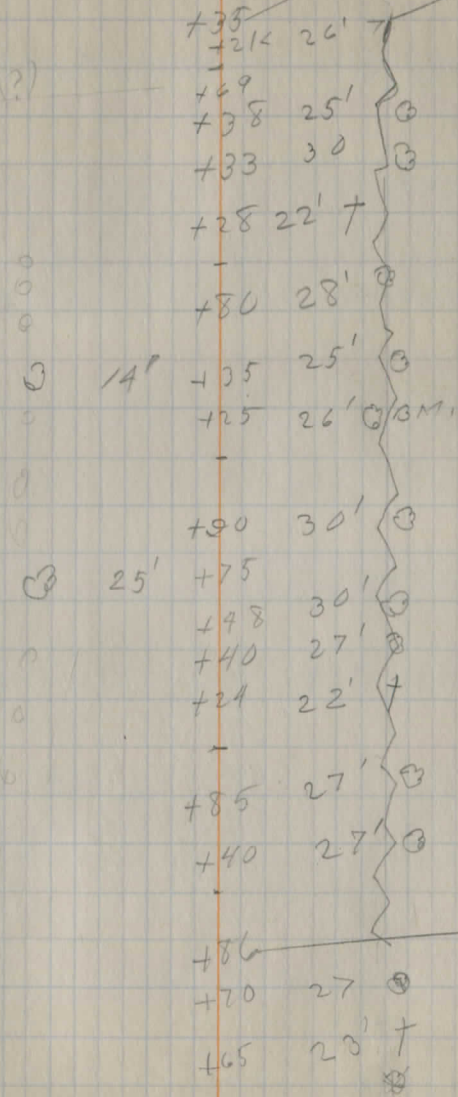 +35
+21 26'
(?) +69
+38 25'
+33 30
+28 22'
+80 28'
14' +35 25'
+25 26' M.
+90 30'
25' +75
+48 30'
+40 27'
+24 22'
+85 27'
+40 27'
+86
+70 27
+65 23'